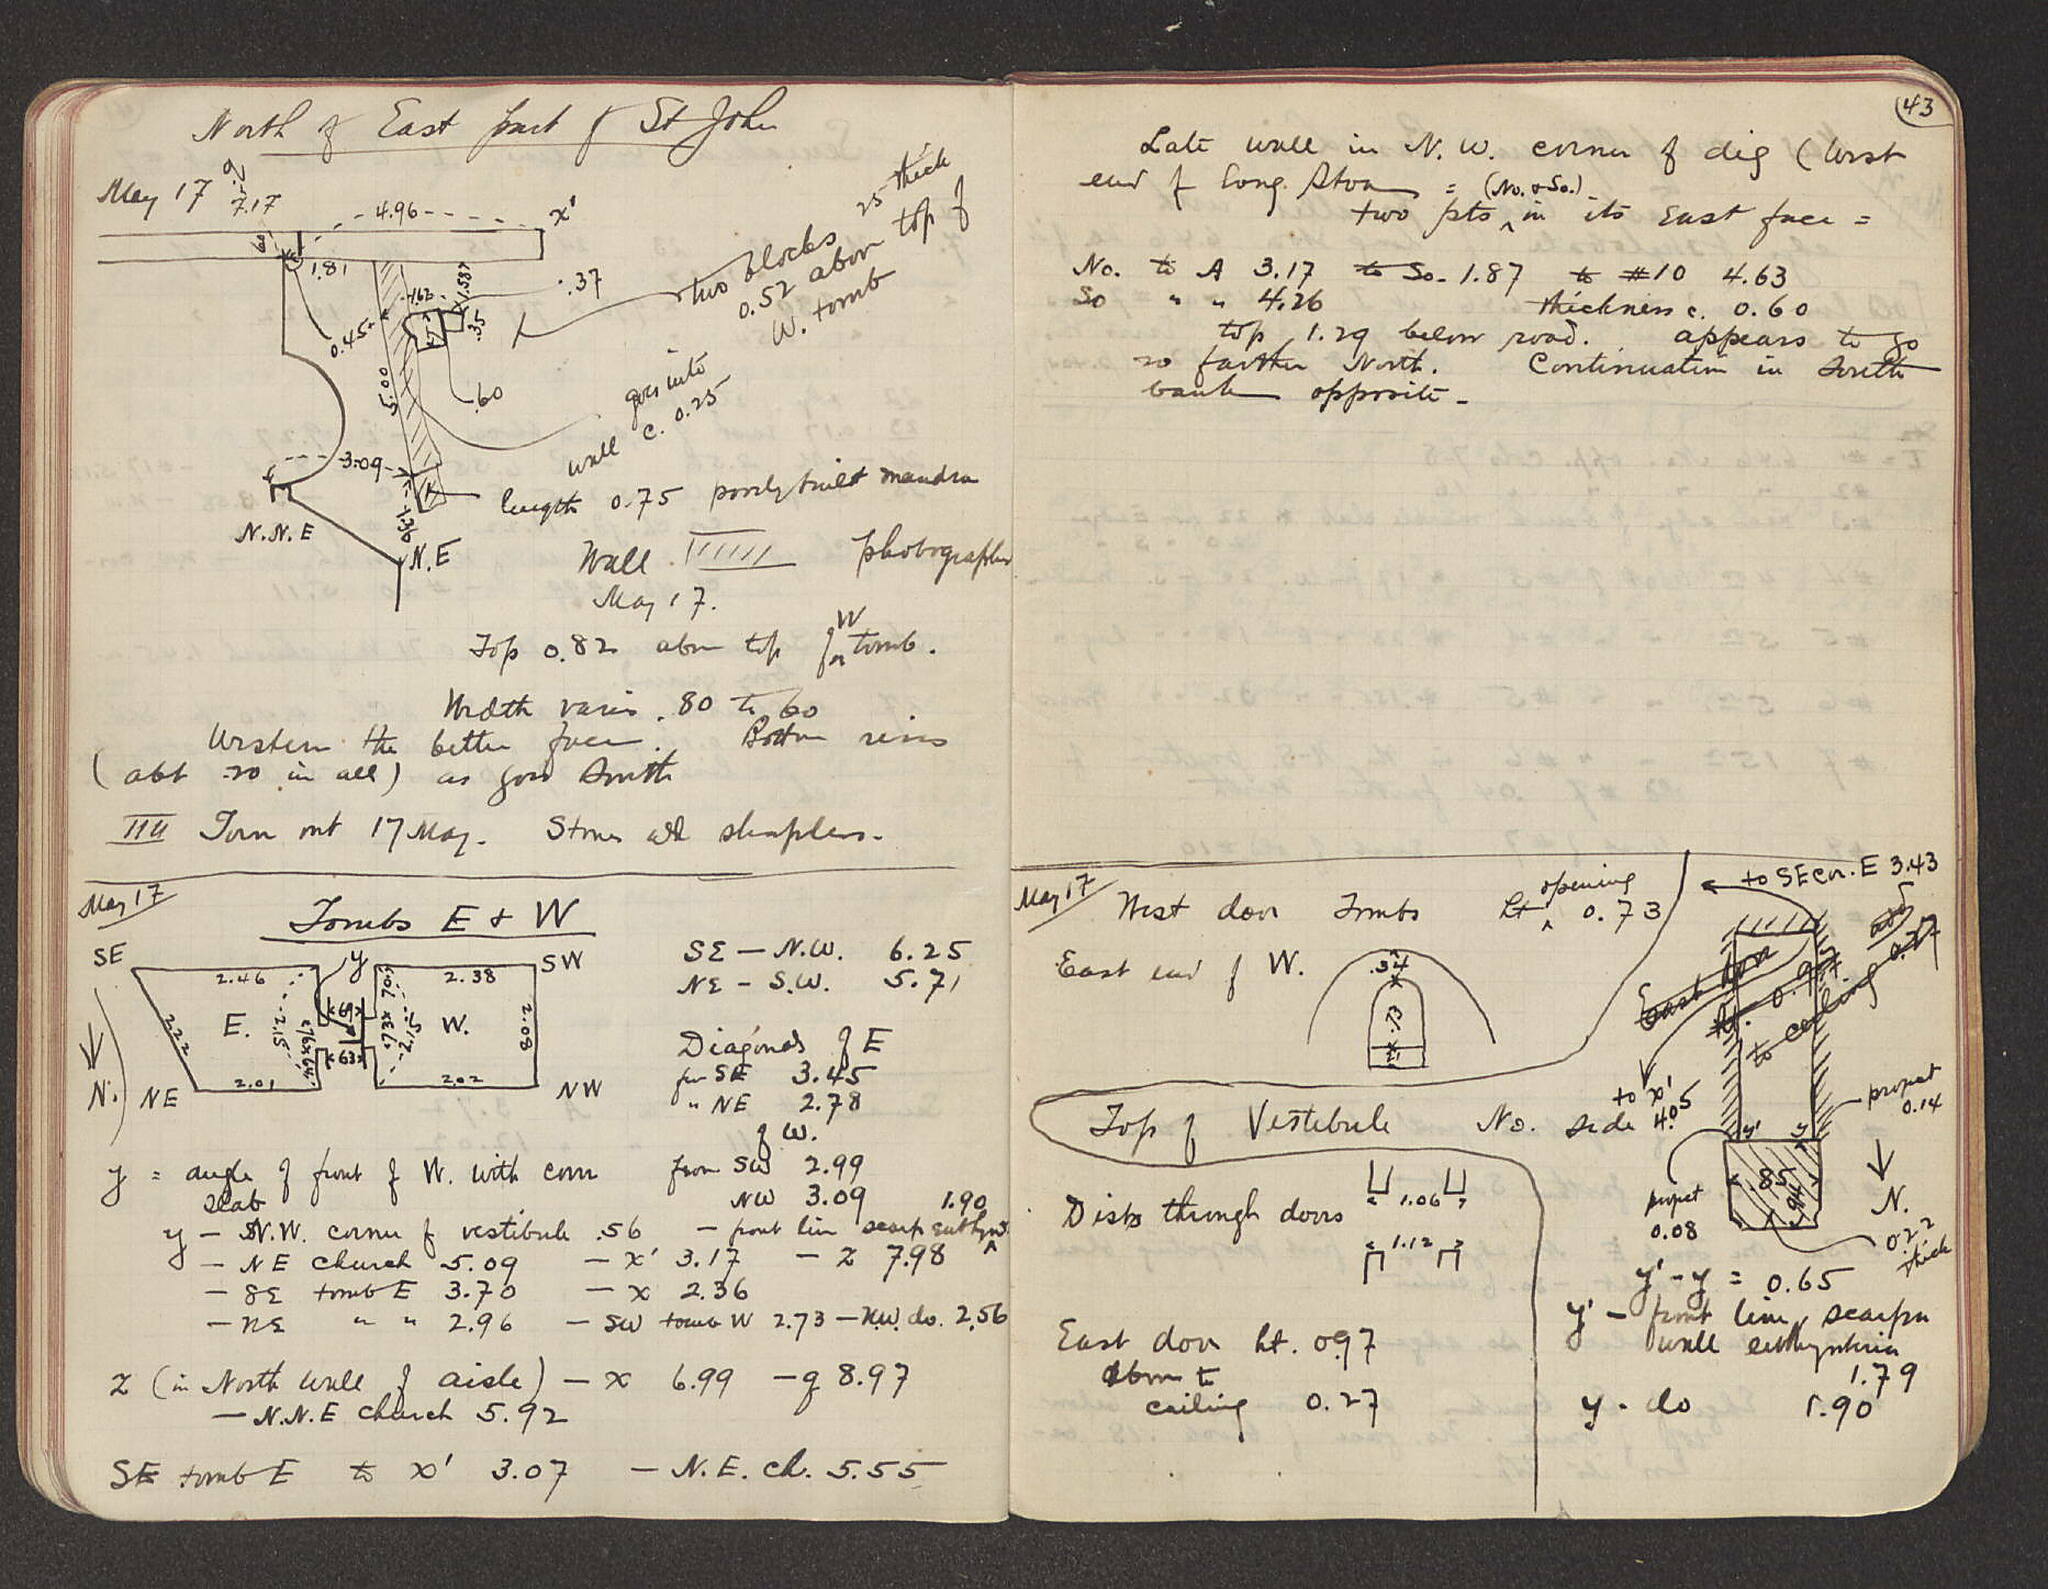 North of East part of St John
May 17
q
7.17
4.96
x'
1.81
.37
1.62
1.587
.35
0.45
.60
5.00
two blocks 25 thick
0.52 above top of
W. tomb
goes into
wall c. 0.25
3.09
K
length 0.75 poorly built mandra
1.36
N.N.E
N.E
Wall photographed
May 17.
Top 0.82 above top of W tomb.
Width varies .80 to 60
Western the better face. Bottom rises
(abt .20 in all) as goes South
Torn out 17 May. Stones all shapeless.
May 17
Tombs E & W
SE
2.46
y
2.38
SW
E.
W.
2.22
2.15
69
63
73
70
2.15
2.08
N.
NE
2.01
2.02
NW
SE – N.W. 6.25
NE – S.W. 5.71
Diagonals of E
from SE 3.45
" NE 2.78
of W.
from SW 2.99
NW 3.09
y = angle of front of W. with cover
slab
1.90
y – N.W. corner of vestibule .56 – front line scarp euthynt.
– NE church 5.09 – x' 3.17 – z 7.98
– SE tomb E 3.70 – x 2.36
– NE " " 2.96 – SW tomb W 2.73 – N.W. do. 2.56
z (in North wall of aisle) – x 6.99 – q 8.97
– N.N.E church 5.92
SE tomb E to x' 3.07 – N.E. ch. 5.55
43
Late wall in N.W. corner of dig (West
end of Long Stoa = (No. & So.)
two pts in its East face =
No. to A 3.17 to So. 1.87 to #10 4.63
So " " 4.26 thickness c. 0.60
top 1.29 below road. appears to go
no farther North. Continuation in South
bank opposite –
May 17
West door Tombs ht opening 0.73
East end of W.
.34
.73
.21
to SE cor. E 3.43
East door
ht. 0.97
to ceiling 0.27
to x'
4.05
Top of Vestibule No. side
project
0.14
y'
y
.85
.94
project
0.08
N.
0.22
thick
Dists through doors
1.06
1.12
y' – y = 0.65
y' – front line, scarp
wall euthynteria
1.79
y – do 1.90
East door ht. 0.97
Above to
ceiling 0.27